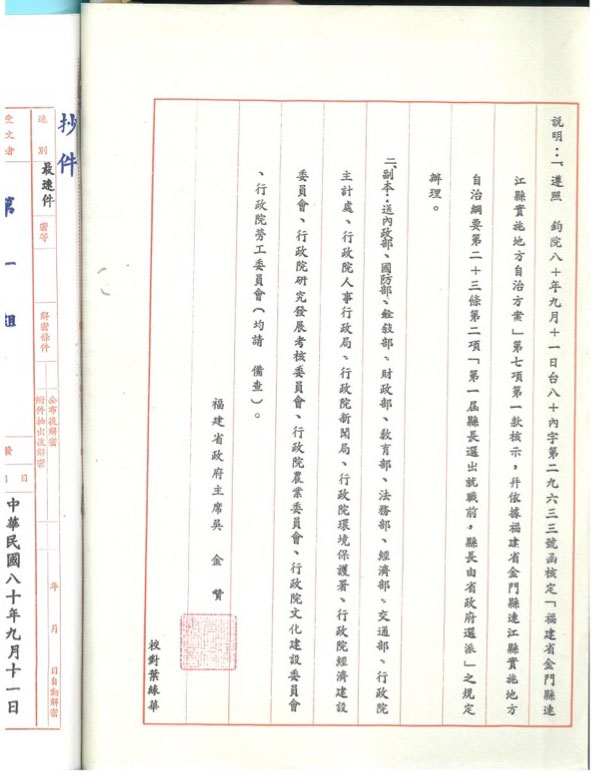 說明：一、遵照　鈞院八十年九月十一日台八十內字第二九六三三號函核定「福建省金門縣連
江縣實施地方自治方案」第七項第一款核示，并依據福建省金門縣連江縣實施地方
自治綱要第二十三條第二項「第一屆縣長選出就職前，縣長由省政府遴派」之規定
辦理。
二、副本：送內政部、國防部、銓敍部、財政部、教育部、法務部、經濟部、交通部、行政院
主計處、行政院人事行政局、行政院新聞局、行政院環境保護署、行政院經濟建設
委員會、行政院研究發展考核委員會、行政院農業委員會、行政院文化建設委員會
、行政院勞工委員會（均請　備查）。
福建省政府主席吳　金　贊
校對葉練華
抄件
速別
最速件
密等
解密條件
公布後解密
附件抽出後解密
年　月　日自動解密
受文者
第一組
日
中華民國八十年九月十一日